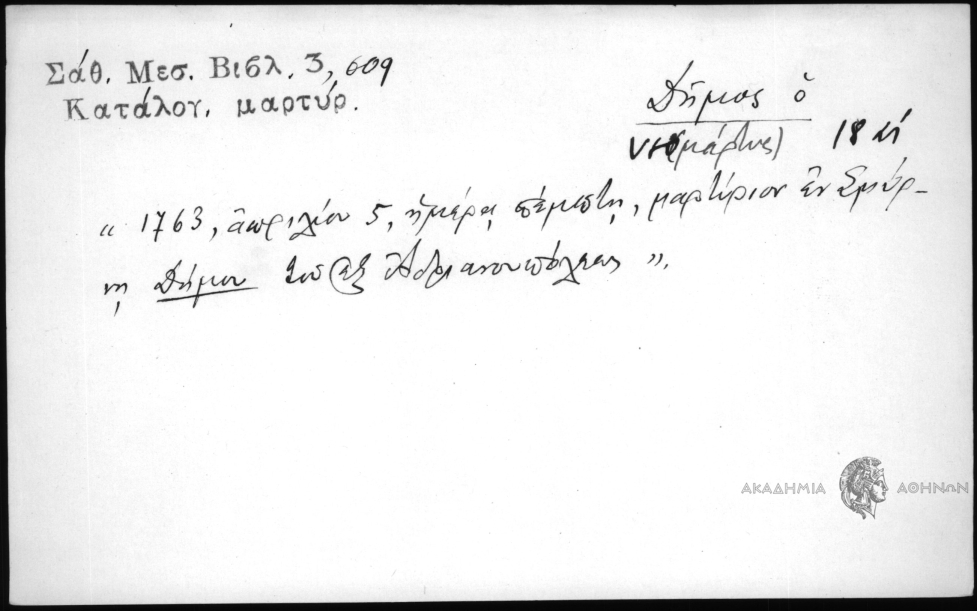 Σάθ. Μεσ. Βιβλ. 3, 609
Κατάλογ. μαρτύρ.
Δῆμος ὁ
(μάρτυς) 18
« 1763, ἀπριλίου 5, ἡμέρᾳ πέμπτῃ, μαρτύριον ἐν Σμύρ-
νῃ Δήμου τοῦ ἐξ Ἀδριανουπόλεως ».
ΑΚΑΔΗΜΙΑ ΑΘΗΝΩΝ